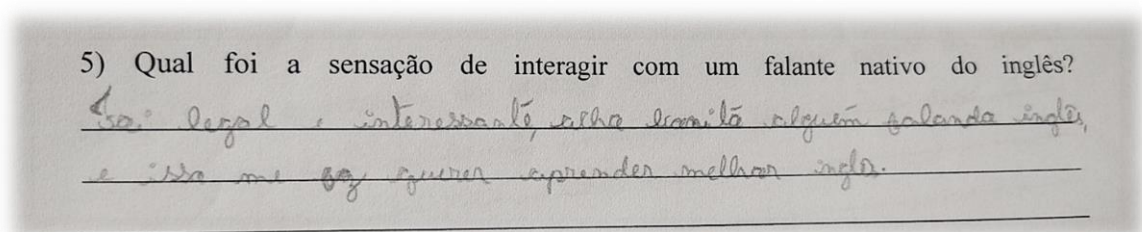 5) Qual foi a sensação de interagir com um falante nativo do inglês?
Foi legal e interessante, acho bonito alguém falando inglês,
e isso me fez querer aprender melhor inglês.